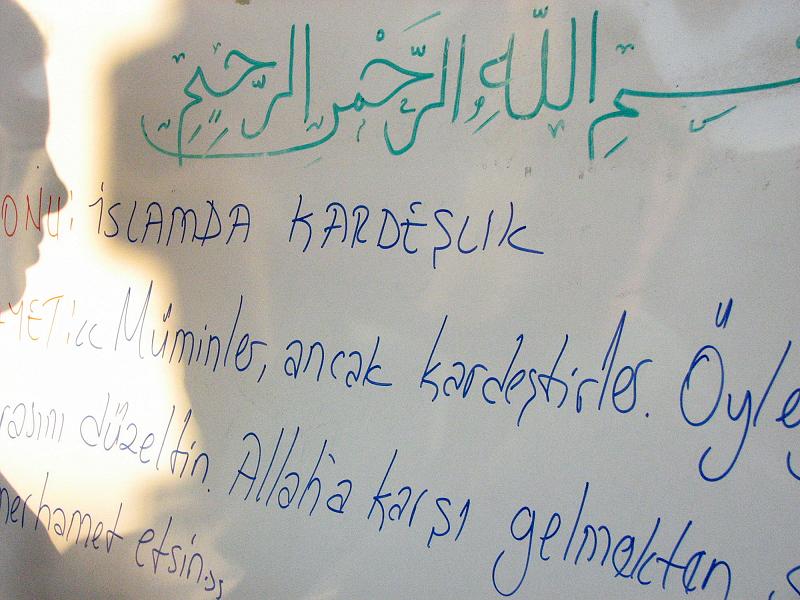 بِسْمِ اللّٰهِ الرَّحْمٰنِ الرَّحِيمِ
ONU: İSLAMDA KARDEŞLİK
YETİ: "Müminler, ancak kardeştirler. Öyle
rasını düzeltin. Allah'a karşı gelmekten s
merhamet etsin..."